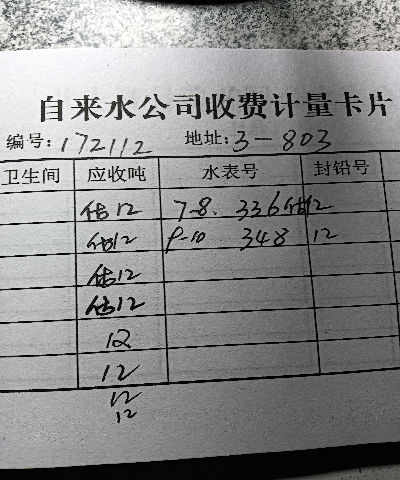 自来水公司收费计量卡片
编号: 172112 地址: 3-803
卫生间 应收吨 水表号 封铅号
估12 7-8. 336 估12
估12 9-10 348 12
估12
估12
12
12
12
12